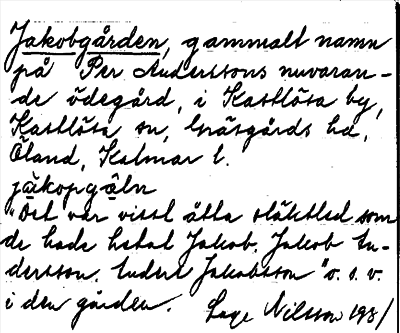 Jakobgården, gammalt namn
på Per Anderssons nuvaran-
de ödegård, i Kastlösa by,
Kastlösa sn, Gräsgårds hd,
Öland, Kalmar l.
jàkopgǫ̂ln
"Det var visst åtta släktled som
de hade hetat Jakob. Jakob An-
dersson. Anders Jakobsson" o.s.v.
i den gården. Lage Nilsson 1981